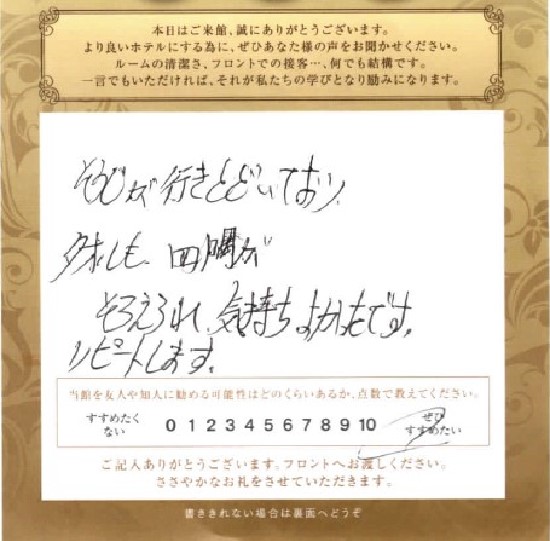 本日はご来館、誠にありがとうございます。
より良いホテルにする為に、ぜひあなた様の声をお聞かせください。
ルームの清潔さ、フロントでの接客…、何でも結構です。
一言でもいただければ、それが私たちの学びとなり励みになります。
そうじが行きとどいており、
タオルも、四隅が
そろえられ、気持ちよかったです。
リピートします。
当館を友人や知人に勧める可能性はどのくらいあるか、点数で教えてください。
すすめたくない 0 1 2 3 4 5 6 7 8 9 10 ぜひすすめたい
ご記入ありがとうございます。フロントへお渡しください。
ささやかなお礼をさせていただきます。
書ききれない場合は裏面へどうぞ